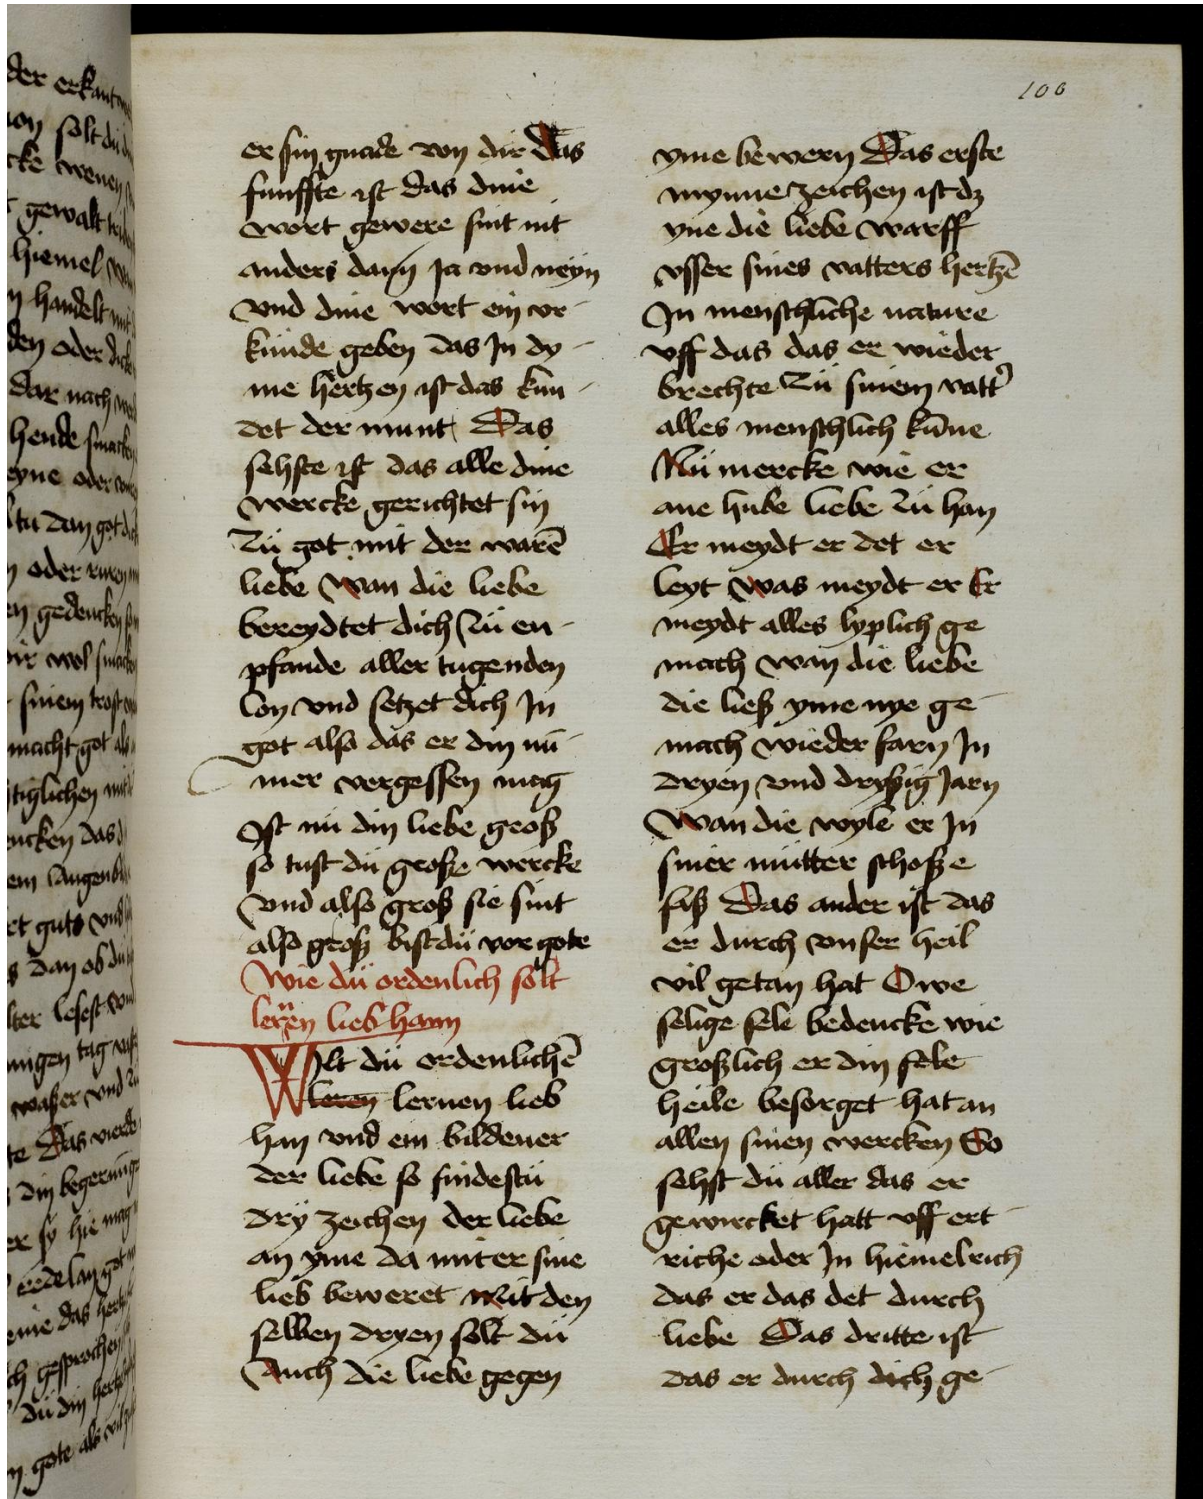 100
er sin gnade von dir Das
funffte ist das dine
wort gewere sint nit
anders dann Ja vnd neyn
vnd dine wort ein vr-
kunde geben das In dy-
me hertzen ist das kun-
det der munt Das
sehste ist das alle dine
wercke gerichtet sin
Zü got mit der warē
liebe Wan die liebe
bereydtet dich Zü en-
pfande aller tugenden
lon vnd setzet dich In
got also das er din nü-
mer vergessen mag
Ist nü din liebe groß
so tust dü große wercke
Vnd also groß sie sint
also groß bist dü vor gote
Wie dü ordenlich solt
lernen lieb hann
Wilt dü ordenlichē
leren lernen lieb
han vnd ein bildener
der liebe so findestü
dry zeichen der liebe
an yme da mit er sine
lieb beweret Mit den
selben dryen solt dü
Auch die liebe gegen
yme bewern Das erste
mynne zeichen ist dz
yne die liebe warff
vsser sines vatters hertzē
In menschliche nature
vff das das er wieder
brechte Zü sinem vatt᾽
alles menschlich kūne
Nü mercke wie er
ane hube liebe Zü han
Er meydt er det er
leyt Was meydt er Er
meydt alles lyplich ge
mach wan die liebe
die ließ yme nye ge-
mach wieder farn In
dryen vnd dryßig Jarn
Wan die wyle er In
siner mütter schoße
saß Das ander ist das
er durch vnser heil
vil getan hat Owe
selige sele bedencke wie
großlich er din sele
heile besorget hat an
allen sinen wercken So
sehst dü aller das er
gewircket hatt vff ert-
riche oder In hiemelrich
das er das det durch
liebe Das dritte ist
das er durch dich ge-